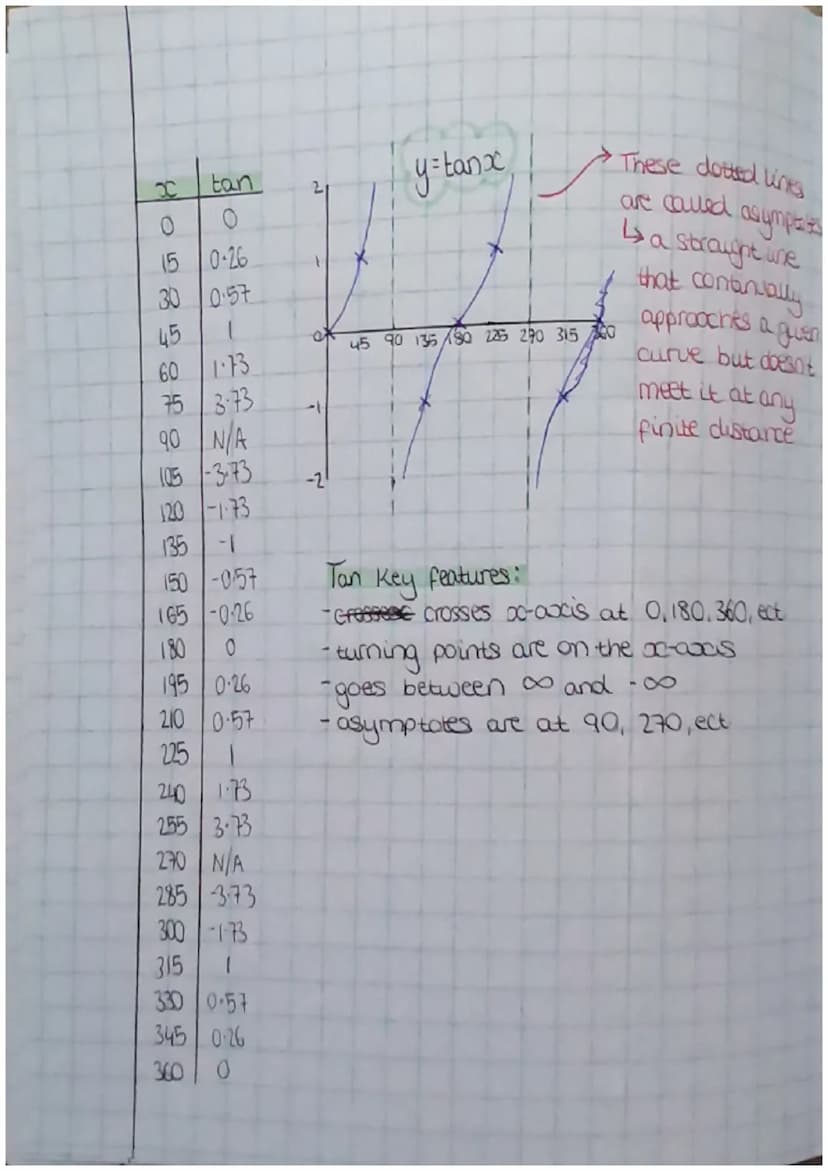 x tan
0 0
15 0.26
30 0.57
45 1
60 1.73
75 3.73
90 N/A
105 -3.73
120 -1.73
135 -1
150 -0.57
165 -0.26
180 0
195 0.26
210 0.57
225 1
240 1.73
255 3.73
270 N/A
285 -3.73
300 -1.73
315 1
330 0.57
345 0.26
360 0
y=tanx
2
1
0
-1
-2
45 90 135 180 225 270 315 360
These dotted lines
are called asymptotes
↳ a straight line
that continually
approaches a given
curve but doesnt
meet it at any
finite distance
Tan Key features:
- crosses x-axis at 0, 180, 360, ect
- turning points are on the x-axis
- goes between ∞ and -∞
- asymptotes are at 90, 270, ect